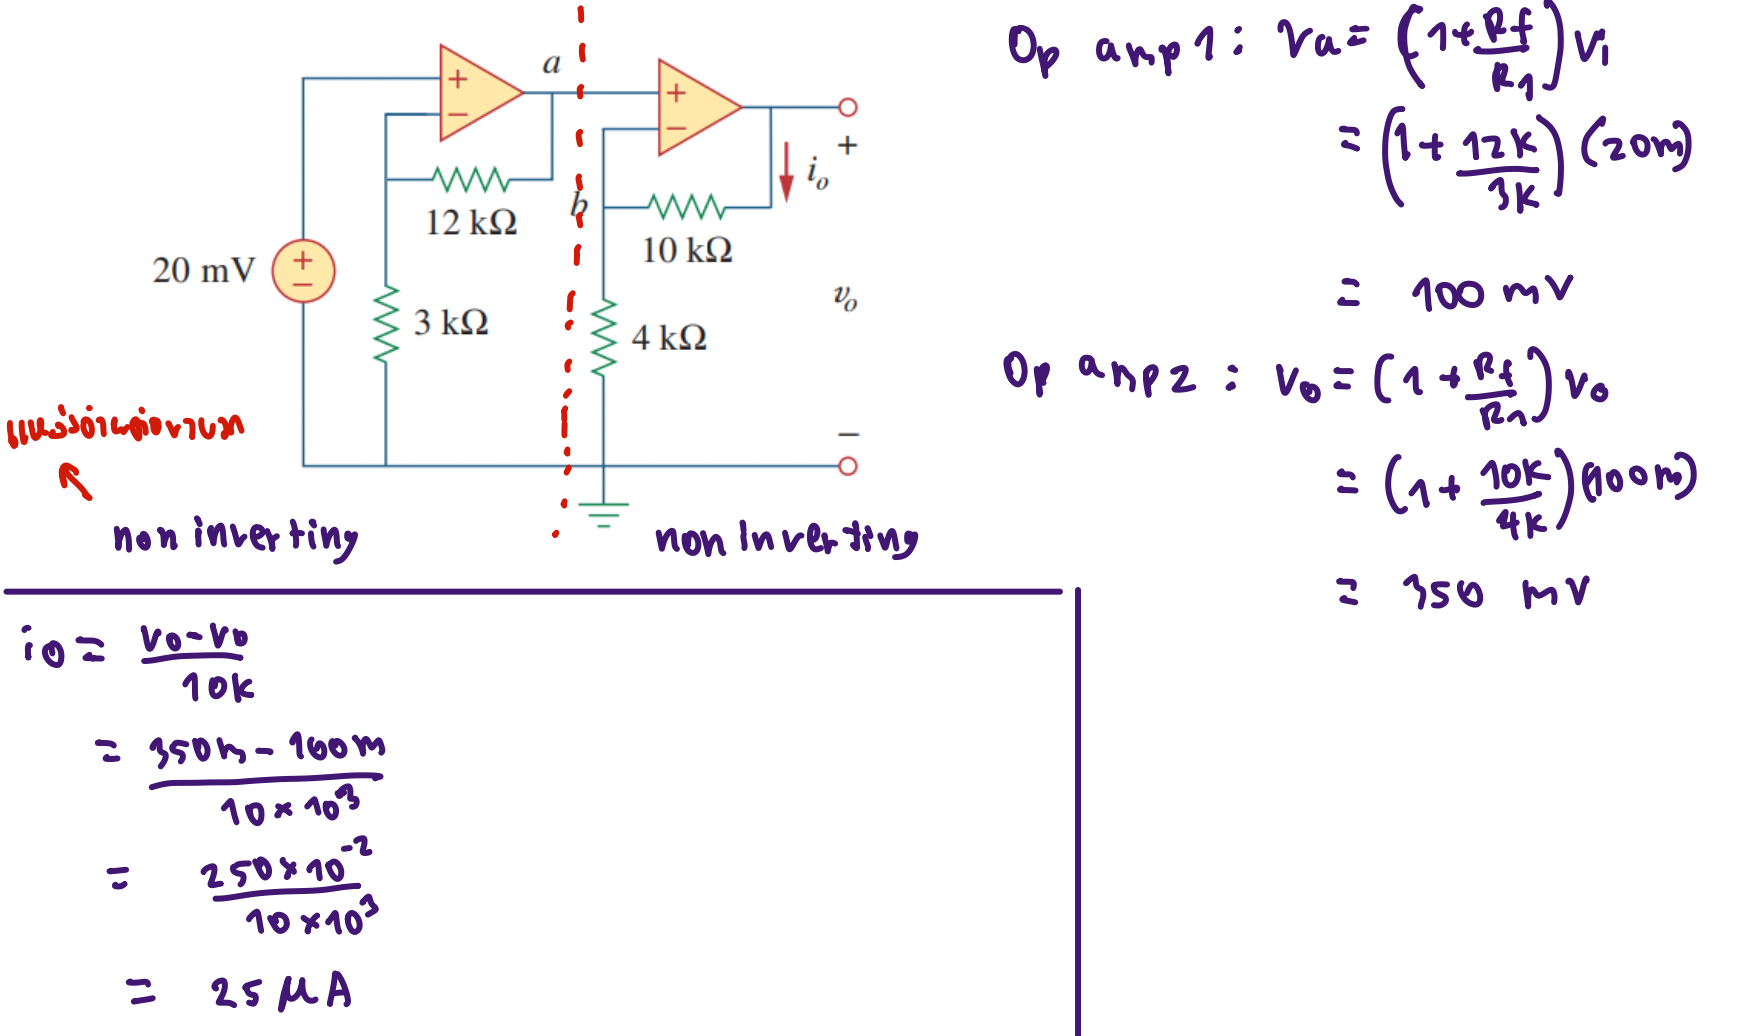 a
+
−
12 kΩ
20 mV
+
−
3 kΩ
b
+
−
10 kΩ
4 kΩ
i_o
+
v_o
−
non inverting
non inverting
Op amp 1 : Va = (1 + Rf/R1) V1
= (1 + 12k/3k) (20m)
= 100 mV
Op amp 2 : Vo = (1 + Rf/R1) Vo
= (1 + 10k/4k) (100m)
= 350 mV
io = Vo-Vo/10k
= 350m - 100m/10×10³
= 250×10⁻²/10×10³
= 25 μA